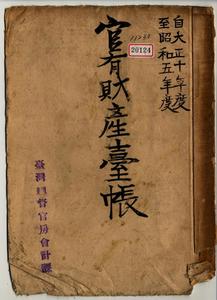 自大正十年度
至昭和五年度
20124
官有財產臺帳
臺灣總督官房會計課